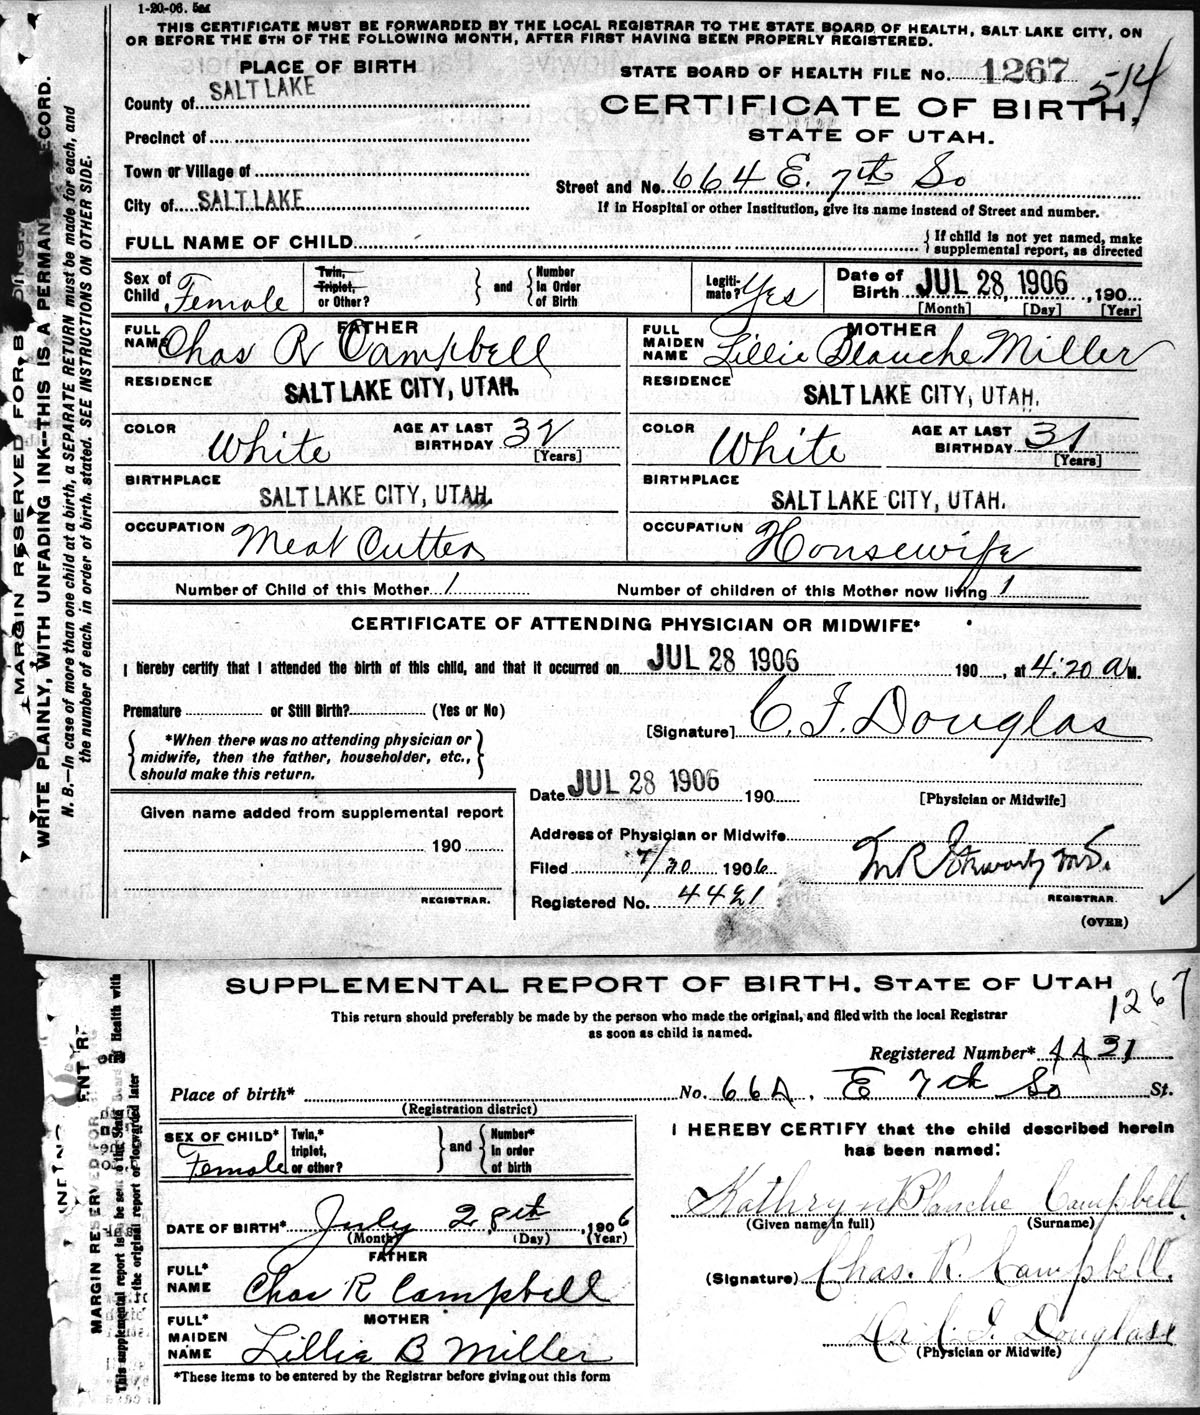 1-20-06. 5m
THIS CERTIFICATE MUST BE FORWARDED BY THE LOCAL REGISTRAR TO THE STATE BOARD OF HEALTH, SALT LAKE CITY, ON
OR BEFORE THE 5TH OF THE FOLLOWING MONTH, AFTER FIRST HAVING BEEN PROPERLY REGISTERED.
PLACE OF BIRTH
STATE BOARD OF HEALTH FILE NO. 1267
514
County of SALT LAKE
CERTIFICATE OF BIRTH,
Precinct of
STATE OF UTAH.
Town or Village of
Street and No. 664 E. 7th So
City of SALT LAKE
If in Hospital or other Institution, give its name instead of Street and number.
FULL NAME OF CHILD
{If child is not yet named, make
supplemental report, as directed
Sex of Child Female
Twin, Triplet, or Other? } and { Number In Order of Birth
Legiti-mate? Yes
Date of Birth JUL 28 1906, 190
[Month] [Day] [Year]
FATHER
FULL NAME Chas R Campbell
MOTHER
FULL MAIDEN NAME Lillie Blanche Miller
RESIDENCE SALT LAKE CITY, UTAH.
RESIDENCE SALT LAKE CITY, UTAH.
COLOR White
AGE AT LAST BIRTHDAY 32 [Years]
COLOR White
AGE AT LAST BIRTHDAY 31 [Years]
BIRTHPLACE SALT LAKE CITY, UTAH.
BIRTHPLACE SALT LAKE CITY, UTAH.
OCCUPATION Meat Cutter
OCCUPATION Housewife
Number of Child of this Mother 1
Number of children of this Mother now living 1
CERTIFICATE OF ATTENDING PHYSICIAN OR MIDWIFE*
I hereby certify that I attended the birth of this child, and that it occurred on JUL 28 1906 190 , at 4:20 a M.
Premature or Still Birth? (Yes or No)
[Signature] C. F. Douglas
{*When there was no attending physician or
midwife, then the father, householder, etc.,
should make this return.}
Date JUL 28 1906 190
[Physician or Midwife]
Given name added from supplemental report
190
REGISTRAR.
Address of Physician or Midwife
Filed 7/30 1906
Registered No. 4421
M.D.
REGISTRAR.
(OVER)
MARGIN RESERVED FOR B
WRITE PLAINLY, WITH UNFADING INK—THIS IS A PERMAN ECORD.
N. B.—In case of more than one child at a birth, a SEPARATE RETURN must be made for each, and
the number of each, in order of birth, stated. SEE INSTRUCTIONS ON OTHER SIDE.
SUPPLEMENTAL REPORT OF BIRTH, STATE OF UTAH
1267
This return should preferably be made by the person who made the original, and filed with the local Registrar
as soon as child is named.
Registered Number* 4431
Place of birth* No. 664. E 7th So St.
(Registration district)
SEX OF CHILD* Female
Twin,* triplet, or other? } and { Number* In order of birth
I HEREBY CERTIFY that the child described herein
has been named:
Kathryn Blanche Campbell
(Given name in full) (Surname)
DATE OF BIRTH* July 28th, 1906
(Month) (Day) (Year)
FATHER
FULL* NAME Chas R Campbell
(Signature) Chas. R. Campbell.
MOTHER
FULL* MAIDEN NAME Lillie B Miller
Dr C. F. Douglas
(Physician or Midwife)
*These items to be entered by the Registrar before giving out this form
MARGIN RESERVED FOR
This supplemental report is to be sent to the State of Health with
the original report or forwarded later